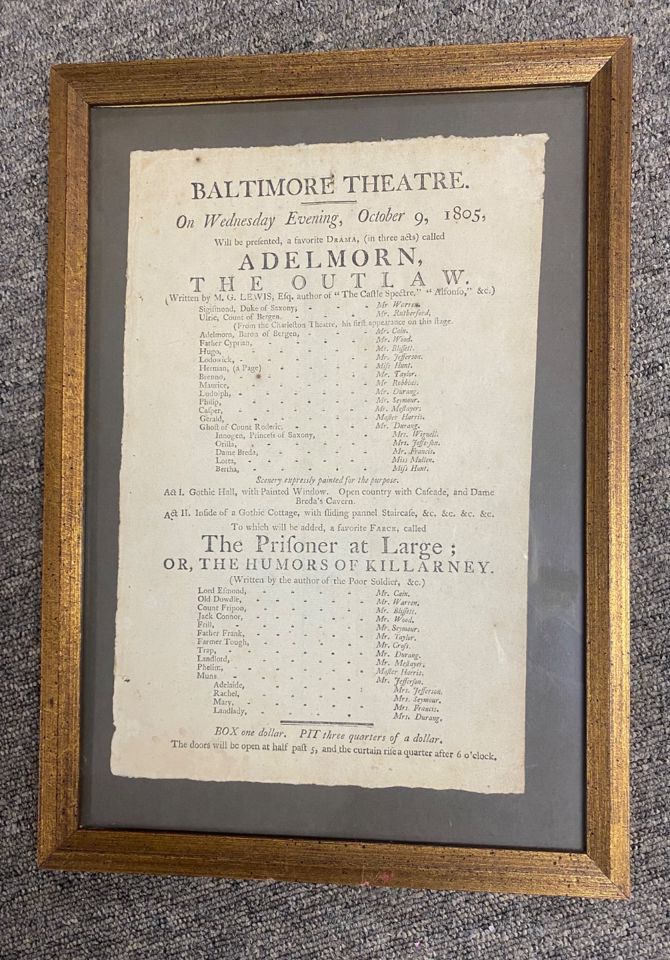 BALTIMORE THEATRE.
On Wednesday Evening, October 9, 1805,
Will be preſented, a favorite DRAMA, (in three acts) called
ADELMORN,
THE OUTLAW.
(Written by M. G. LEWIS, Eſq. author of "The Caſtle Spectre," "Alfonſo," &c.)
Sigiſmond, Duke of Saxony, - - - Mr Warren.
Ulric, Count of Bergen. - - - - Mr. Rutherford,
(From the Charleſton Theatre, his firſt appearance on this ſtage.
Adelmorn, Baron of Bergen, - - - - Mr. Cain.
Father Cyprian, - - - - - Mr. Wood.
Hugo, - - - - - - Mr. Bliſſett.
Lodowick, - - - - - - Mr. Jefferson.
Herman, (a Page) - - - - - Miſs Hunt.
Brenno, - - - - - - Mr. Taylor.
Maurice, - - - - - - Mr Robbins.
Ludolph, - - - - - - Mr. Durang.
Philip, - - - - - - Mr. Seymour.
Caſper, - - - - - - Mr. Meſtayer.
Gerald, - - - - - - Maſter Harris.
Ghoſt of Count Roderic. - - - - Mr. Durang.
Innogen, Princeſs of Saxony, - - - - Mrs. Wignell.
Orilla, - - - - - - Mrs. Jefferſon.
Dame Breda, - - - - - Mr. Francis.
Lotta, - - - - - - Miſs Mullen.
Bertha, - - - - - - Miſs Hunt.
Scenery expreſsly painted for the purpose.
Act I. Gothic Hall, with Painted Window. Open country with Caſcade, and Dame
Breda's Cavern.
Act II. Inſide of a Gothic Cottage, with ſliding pannel Staircaſe, &c, &c. &c. &c.
To which will be added, a favorite FARCE, called
The Priſoner at Large;
OR, THE HUMORS OF KILLARNEY.
(Written by the author of the Poor Soldier, &c.)
Lord Eſmond, - - - - - Mr. Cain.
Old Dowdle, - - - - - - Mr. Warren.
Count Fripon, - - - - - Mr. Bliſſett.
Jack Connor, - - - - - - Mr. Wood.
Frill, - - - - - - Mr. Seymour.
Father Frank, - - - - - - Mr. Taylor.
Farmer Tough, - - - - - Mr. Croſs.
Trap, - - - - - - Mr. Durang.
Landlord, - - - - - - Mr. Meſtayer.
Phelim, - - - - - - Maſter Harris.
Muns - - - - - - Mr. Jefferſon.
Adelaide, - - - - - Mrs. Jefferſon.
Rachel, - - - - - Mrs. Seymour.
Mary. - - - - - Mrs. Francis.
Landlady, - - - - - Mrs. Durang.
BOX one dollar. PIT three quarters of a dollar.
The doors will be open at half paſt 5, and the curtain riſe a quarter after 6 o'clock.